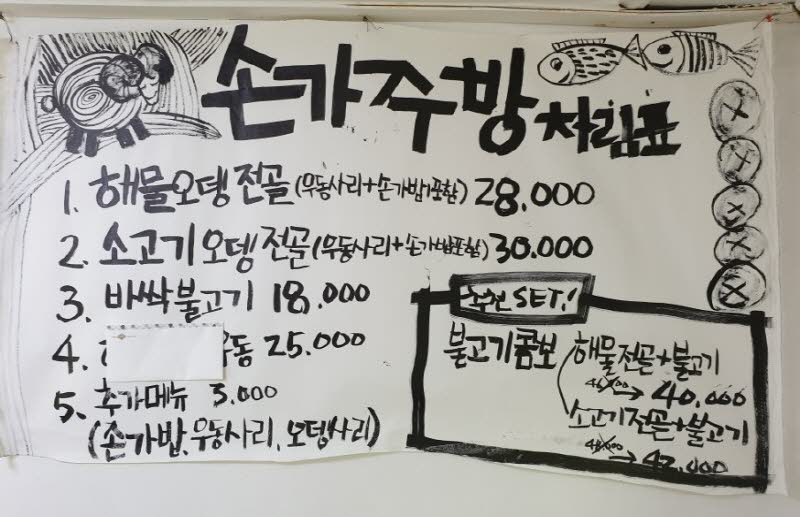 손가주방 차림표
1. 해물오뎅전골 (우동사리+손가밥포함) 28.000
2. 소고기오뎅전골 (우동사리+손가밥포함) 30.000
3. 바싹불고기 18.000
4. 우동 25.000
5. 추가메뉴 3.000
(손가밥, 우동사리, 오뎅사리)
추천 SET!
불고기콤보
해물전골+불고기
46.000 → 40.000
소고기전골+불고기
48.000 → 42.000